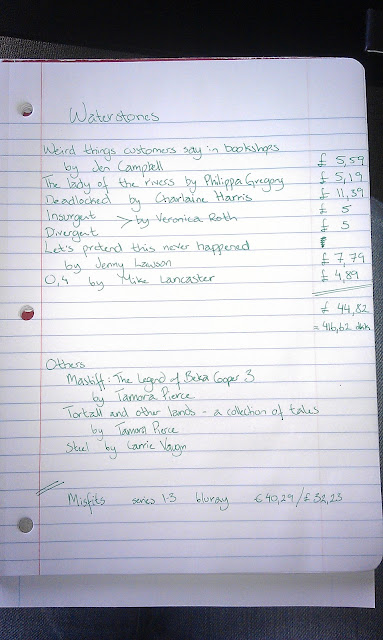 Waterstones
Weird things customers say in bookshops
by Jen Campbell £ 5,59
The lady of the rivers by Philippa Gregory £ 5,19
Deadlocked by Charlaine Harris £ 11,39
Insurgent £ 5
> by Veronica Roth
Divergent £ 5
Let's pretend this never happened
by Jenny Lawson £ 7,79
0,4 by Mike Lancaster £ 4,89
£ 44,82
= 416,62 dkk
Others
Mastiff: The Legend of Beka Cooper 3
by Tamora Pierce
Tortall and other lands - a collection of tales
by Tamora Pierce
Steel by Carrie Vaugn
Misfits series 1-3 bluray € 40,29/£ 32,23